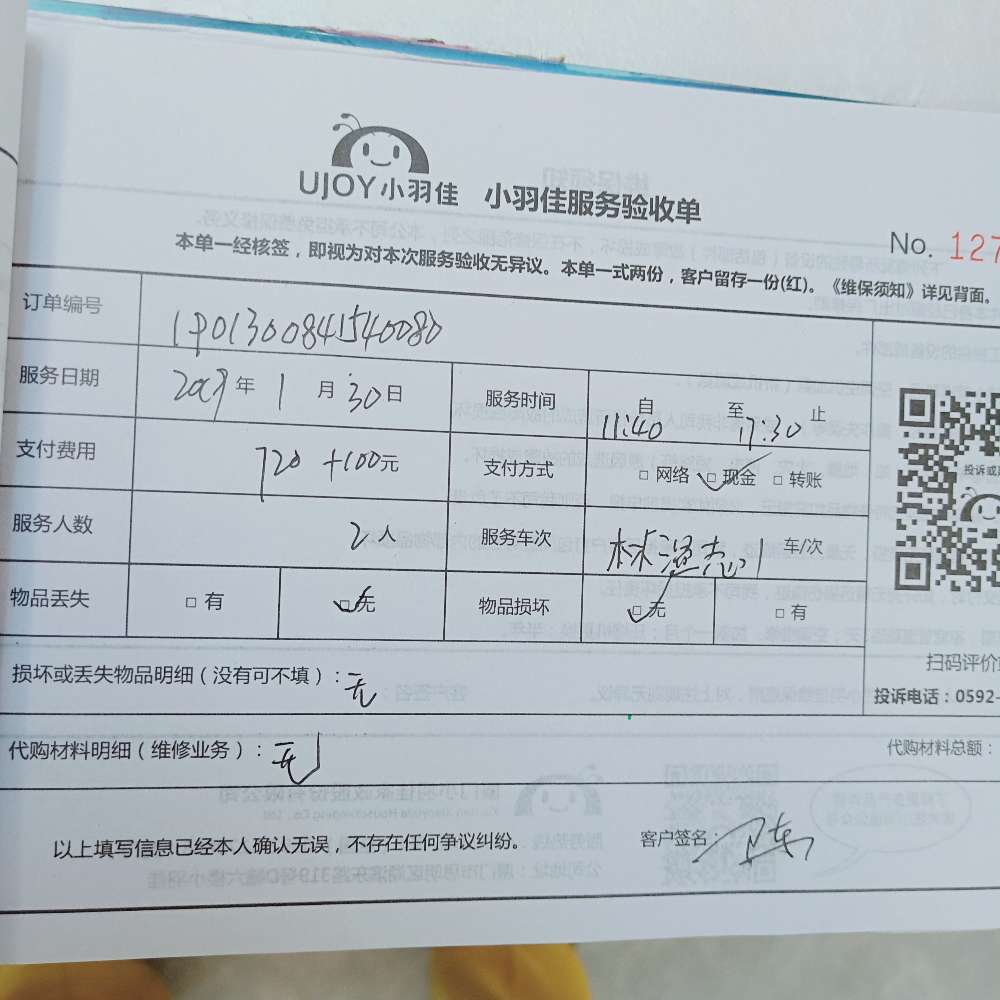 UJOY小羽佳 小羽佳服务验收单
No. 127
本单一经核签，即视为对本次服务验收无异议。本单一式两份，客户留存一份(红)。《维保须知》详见背面。
订单编号 1901300841540080
服务日期 2019年 1 月 30日 服务时间 自 11:40 至 17:30 止
支付费用 720 +100元 支付方式 □ 网络 ☑ 现金 □ 转账
投诉或
服务人数 2人 服务车次 1 车/次
物品丢失 □ 有 ☑ 无 物品损坏 ☑ 无 □ 有
扫码评价
损坏或丢失物品明细（没有可不填）：无
投诉电话：0592-
代购材料明细（维修业务）：无
代购材料总额：
以上填写信息已经本人确认无误，不存在任何争议纠纷。 客户签名：